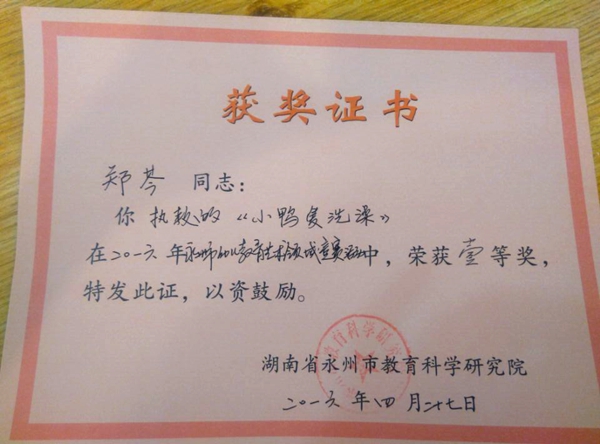 获奖证书
郑芩 同志：
你执教的《小鸭爱洗澡》
在二〇一六年永州市幼教 领域竞赛活动中，荣获壹等奖，
特发此证，以资鼓励。
教育科学研究
湖南省永州市教育科学研究院
二〇一六年四月二十七日